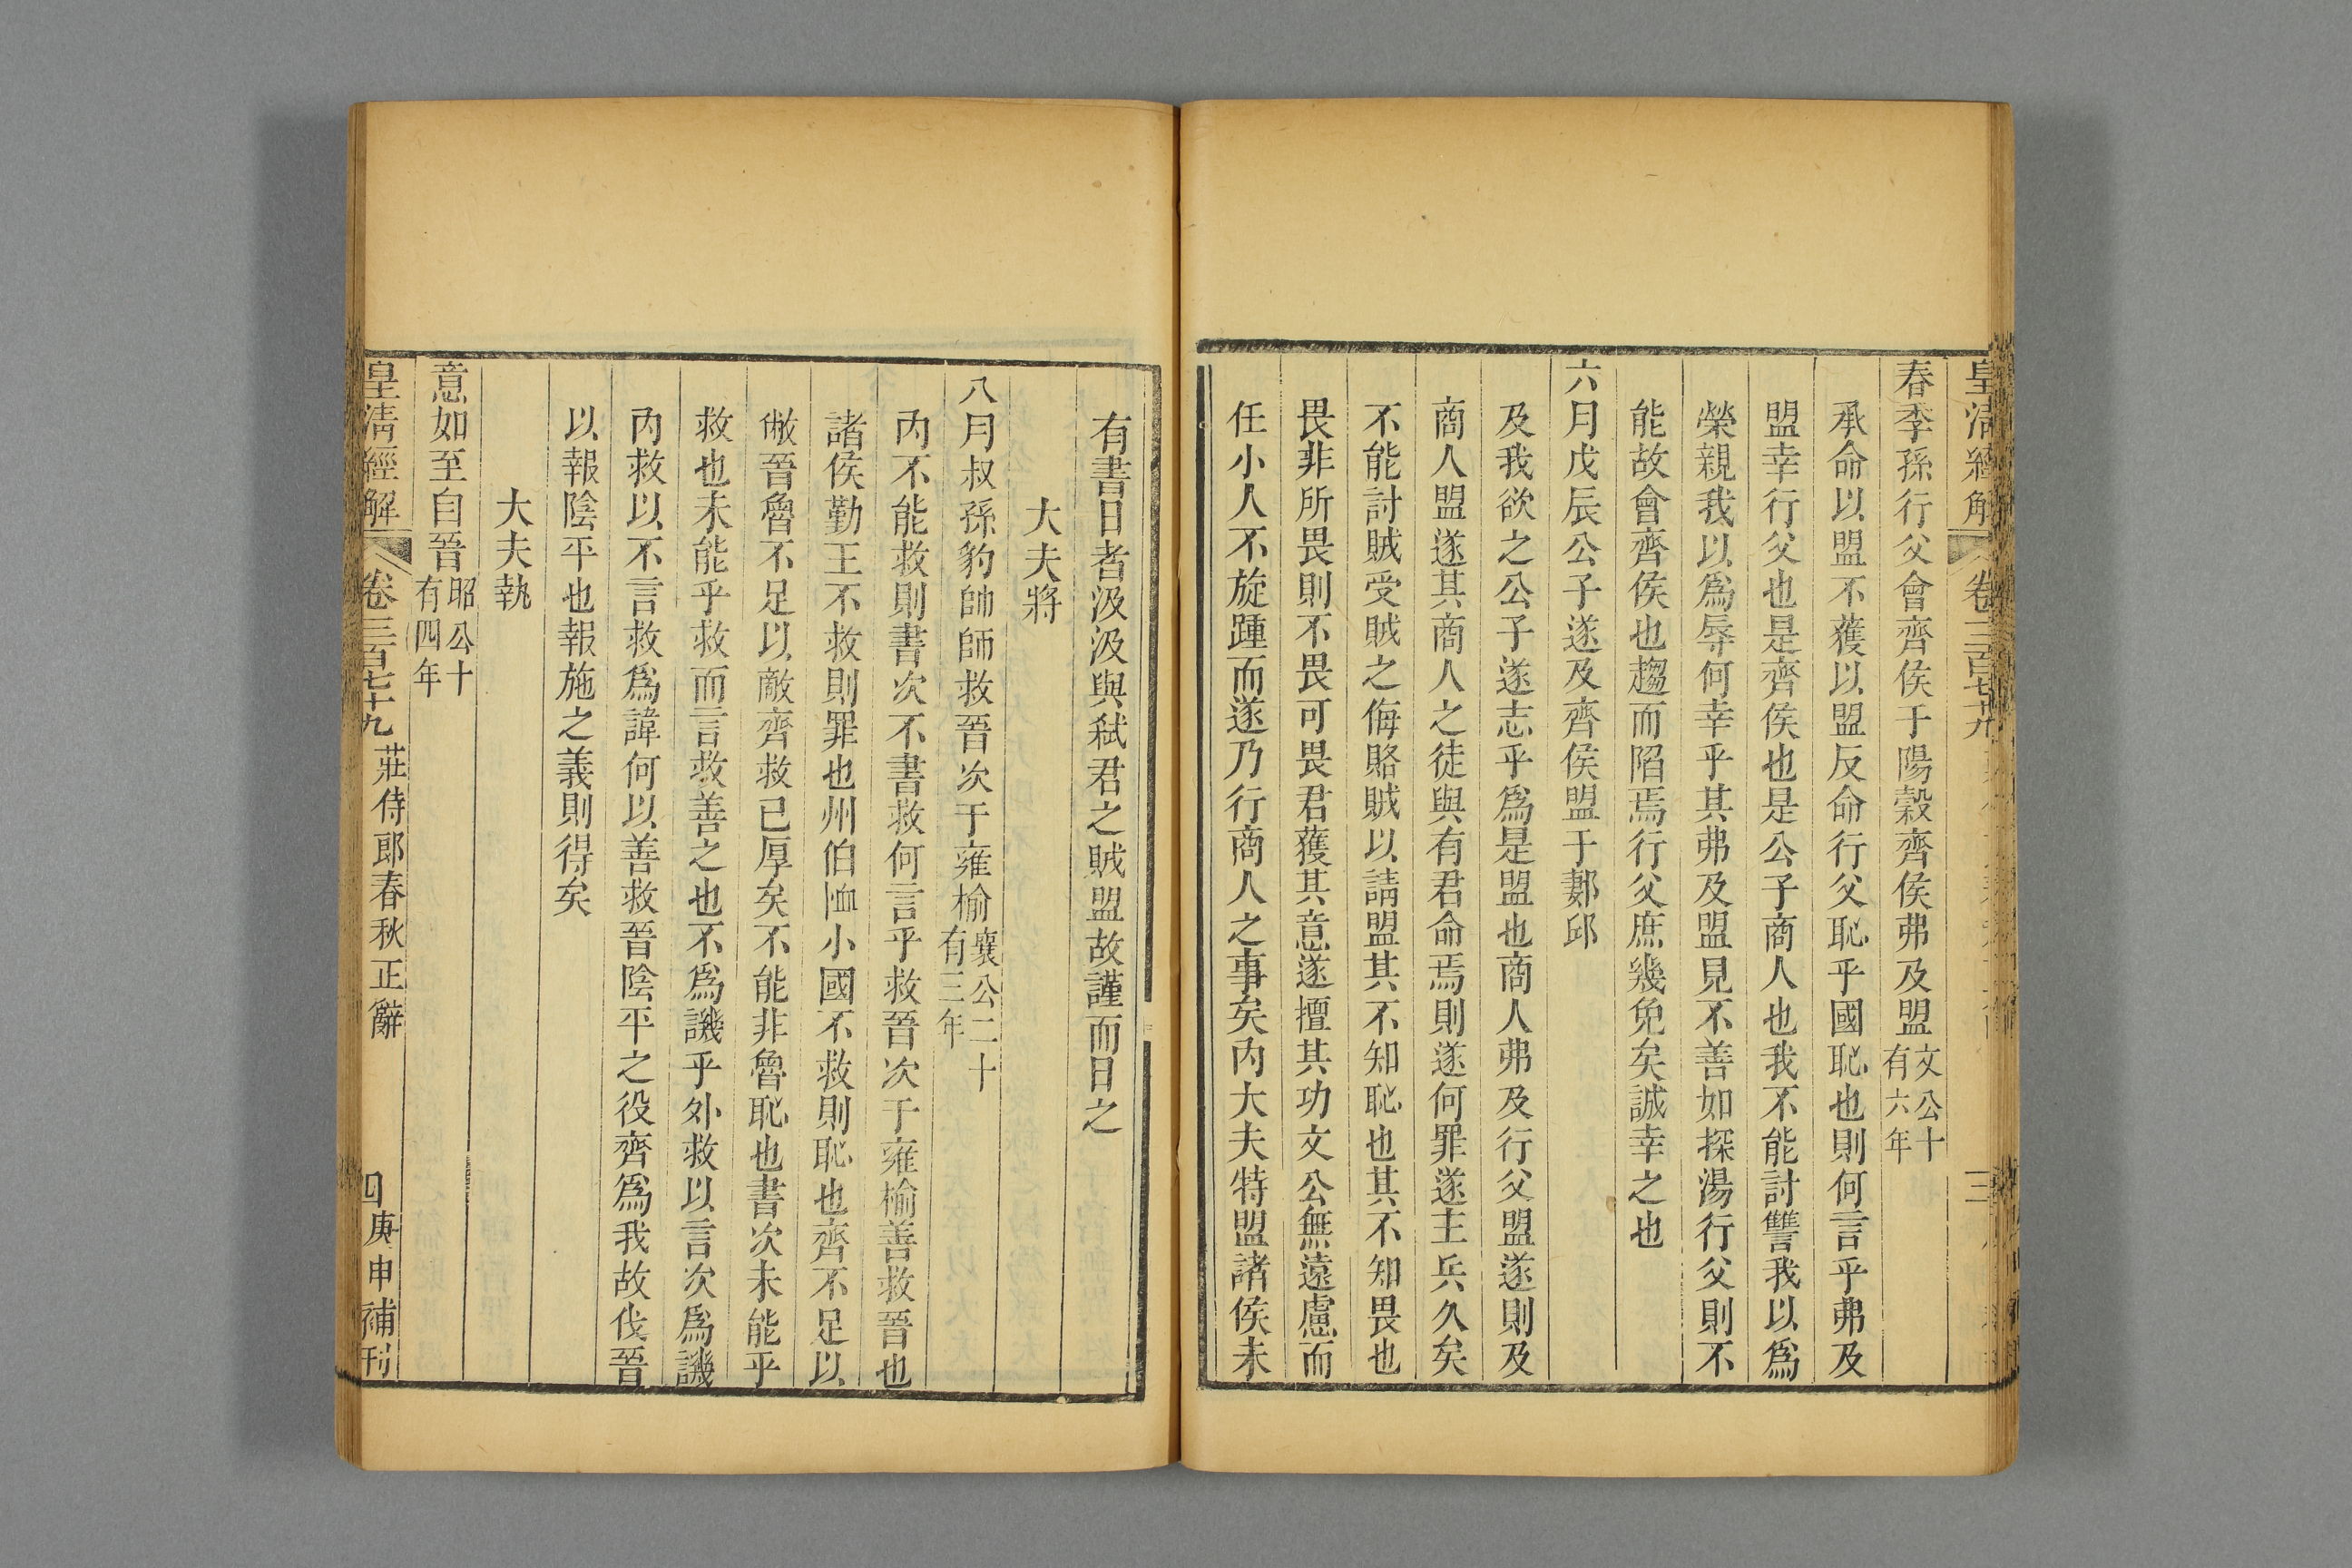 皇清經解 卷三百七十九 三
春季孫行父會齊侯于陽穀齊侯弗及盟文公十有六年
承命以盟不獲以盟反命行父恥乎國恥也則何言乎弗及
盟幸行父也是齊侯也是公子商人也我不能討讐我以爲
榮親我以爲辱何幸乎其弗及盟見不善如探湯行父則不
能故會齊侯也趨而陷焉行父庶幾免矣誠幸之也
六月戊辰公子遂及齊侯盟于郪邱
及我欲之公子遂志乎爲是盟也商人弗及行父盟遂則及
商人盟遂其商人之徒與有君命焉則遂何罪遂主兵久矣
不能討賊受賊之侮賂賊以請盟其不知恥也其不知畏也
畏非所畏則不畏可畏君獲其意遂擅其功文公無遠慮而
任小人不旋踵而遂乃行商人之事矣內大夫特盟諸侯未
有書日者汲汲與弒君之賊盟故謹而日之
大夫將
八月叔孫豹帥師救晉次于雍榆襄公二十有三年
內不能救則書次不書救何言乎救晉次于雍榆善救晉也
諸侯勤王不救則罪也州伯恤小國不救則恥也齊不足以
敝晉魯不足以敵齊救已厚矣不能非魯恥也書次未能乎
救也未能乎救而言救善之也不爲譏乎外救以言次爲譏
內救以不言救爲諱何以善救晉陰平之役齊爲我故伐晉
以報陰平也報施之義則得矣
大夫執
意如至自晉昭公十有四年
皇清經解 卷三百七十九 莊侍郎春秋正辭 四 庚申補刊